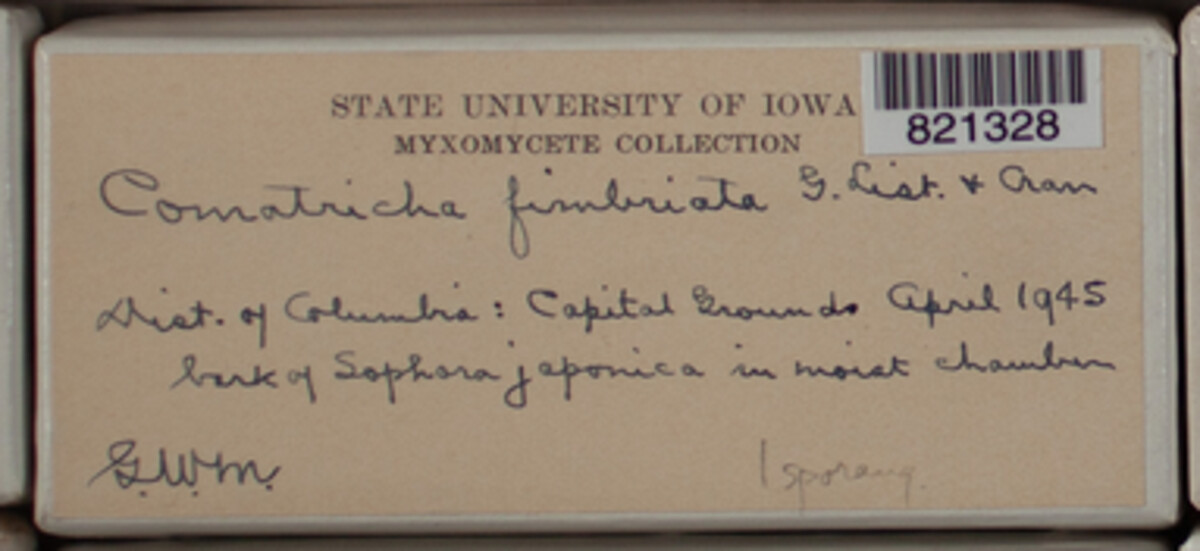 STATE UNIVERSITY OF IOWA
MYXOMYCETE COLLECTION
821328
Comatricha fimbriata G. List. & Cran
Dist. of Columbia: Capital Grounds April 1945
bark of Sophora japonica in moist chamber
G.W.M.
1 sporang.